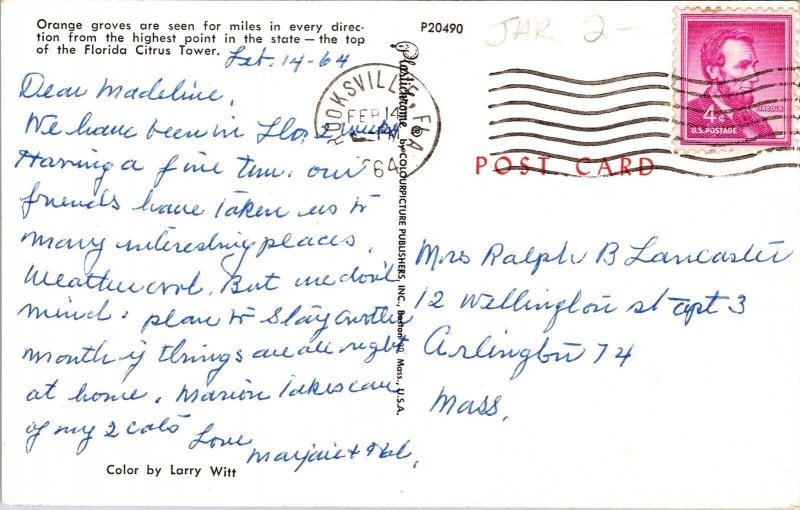 Orange groves are seen for miles in every direc-
tion from the highest point in the state — the top
of the Florida Citrus Tower.
Feb. 14-64
Dear Madeline,
We have been in Flo. 2 weeks
Having a fine time. our
friends have taken us to
many interesting places.
Weather cool. But we don't
mind. plan to stay another
month if things are all right
at home. Marion takes care
of my 2 cats
Love
Marjorie + Hal.
Color by Larry Witt
P20490
JAR 2-
Plastichrome ® by COLOURPICTURE PUBLISHERS, INC., Boston 30, Mass., U.S.A.
ROOKSVILLE, FLA.
FEB 14
PM
1964
4¢
LINCOLN
U.S. POSTAGE
POST CARD
Mrs Ralph B Lancaster
12 Wellington st apt 3
Arlington 74
Mass.